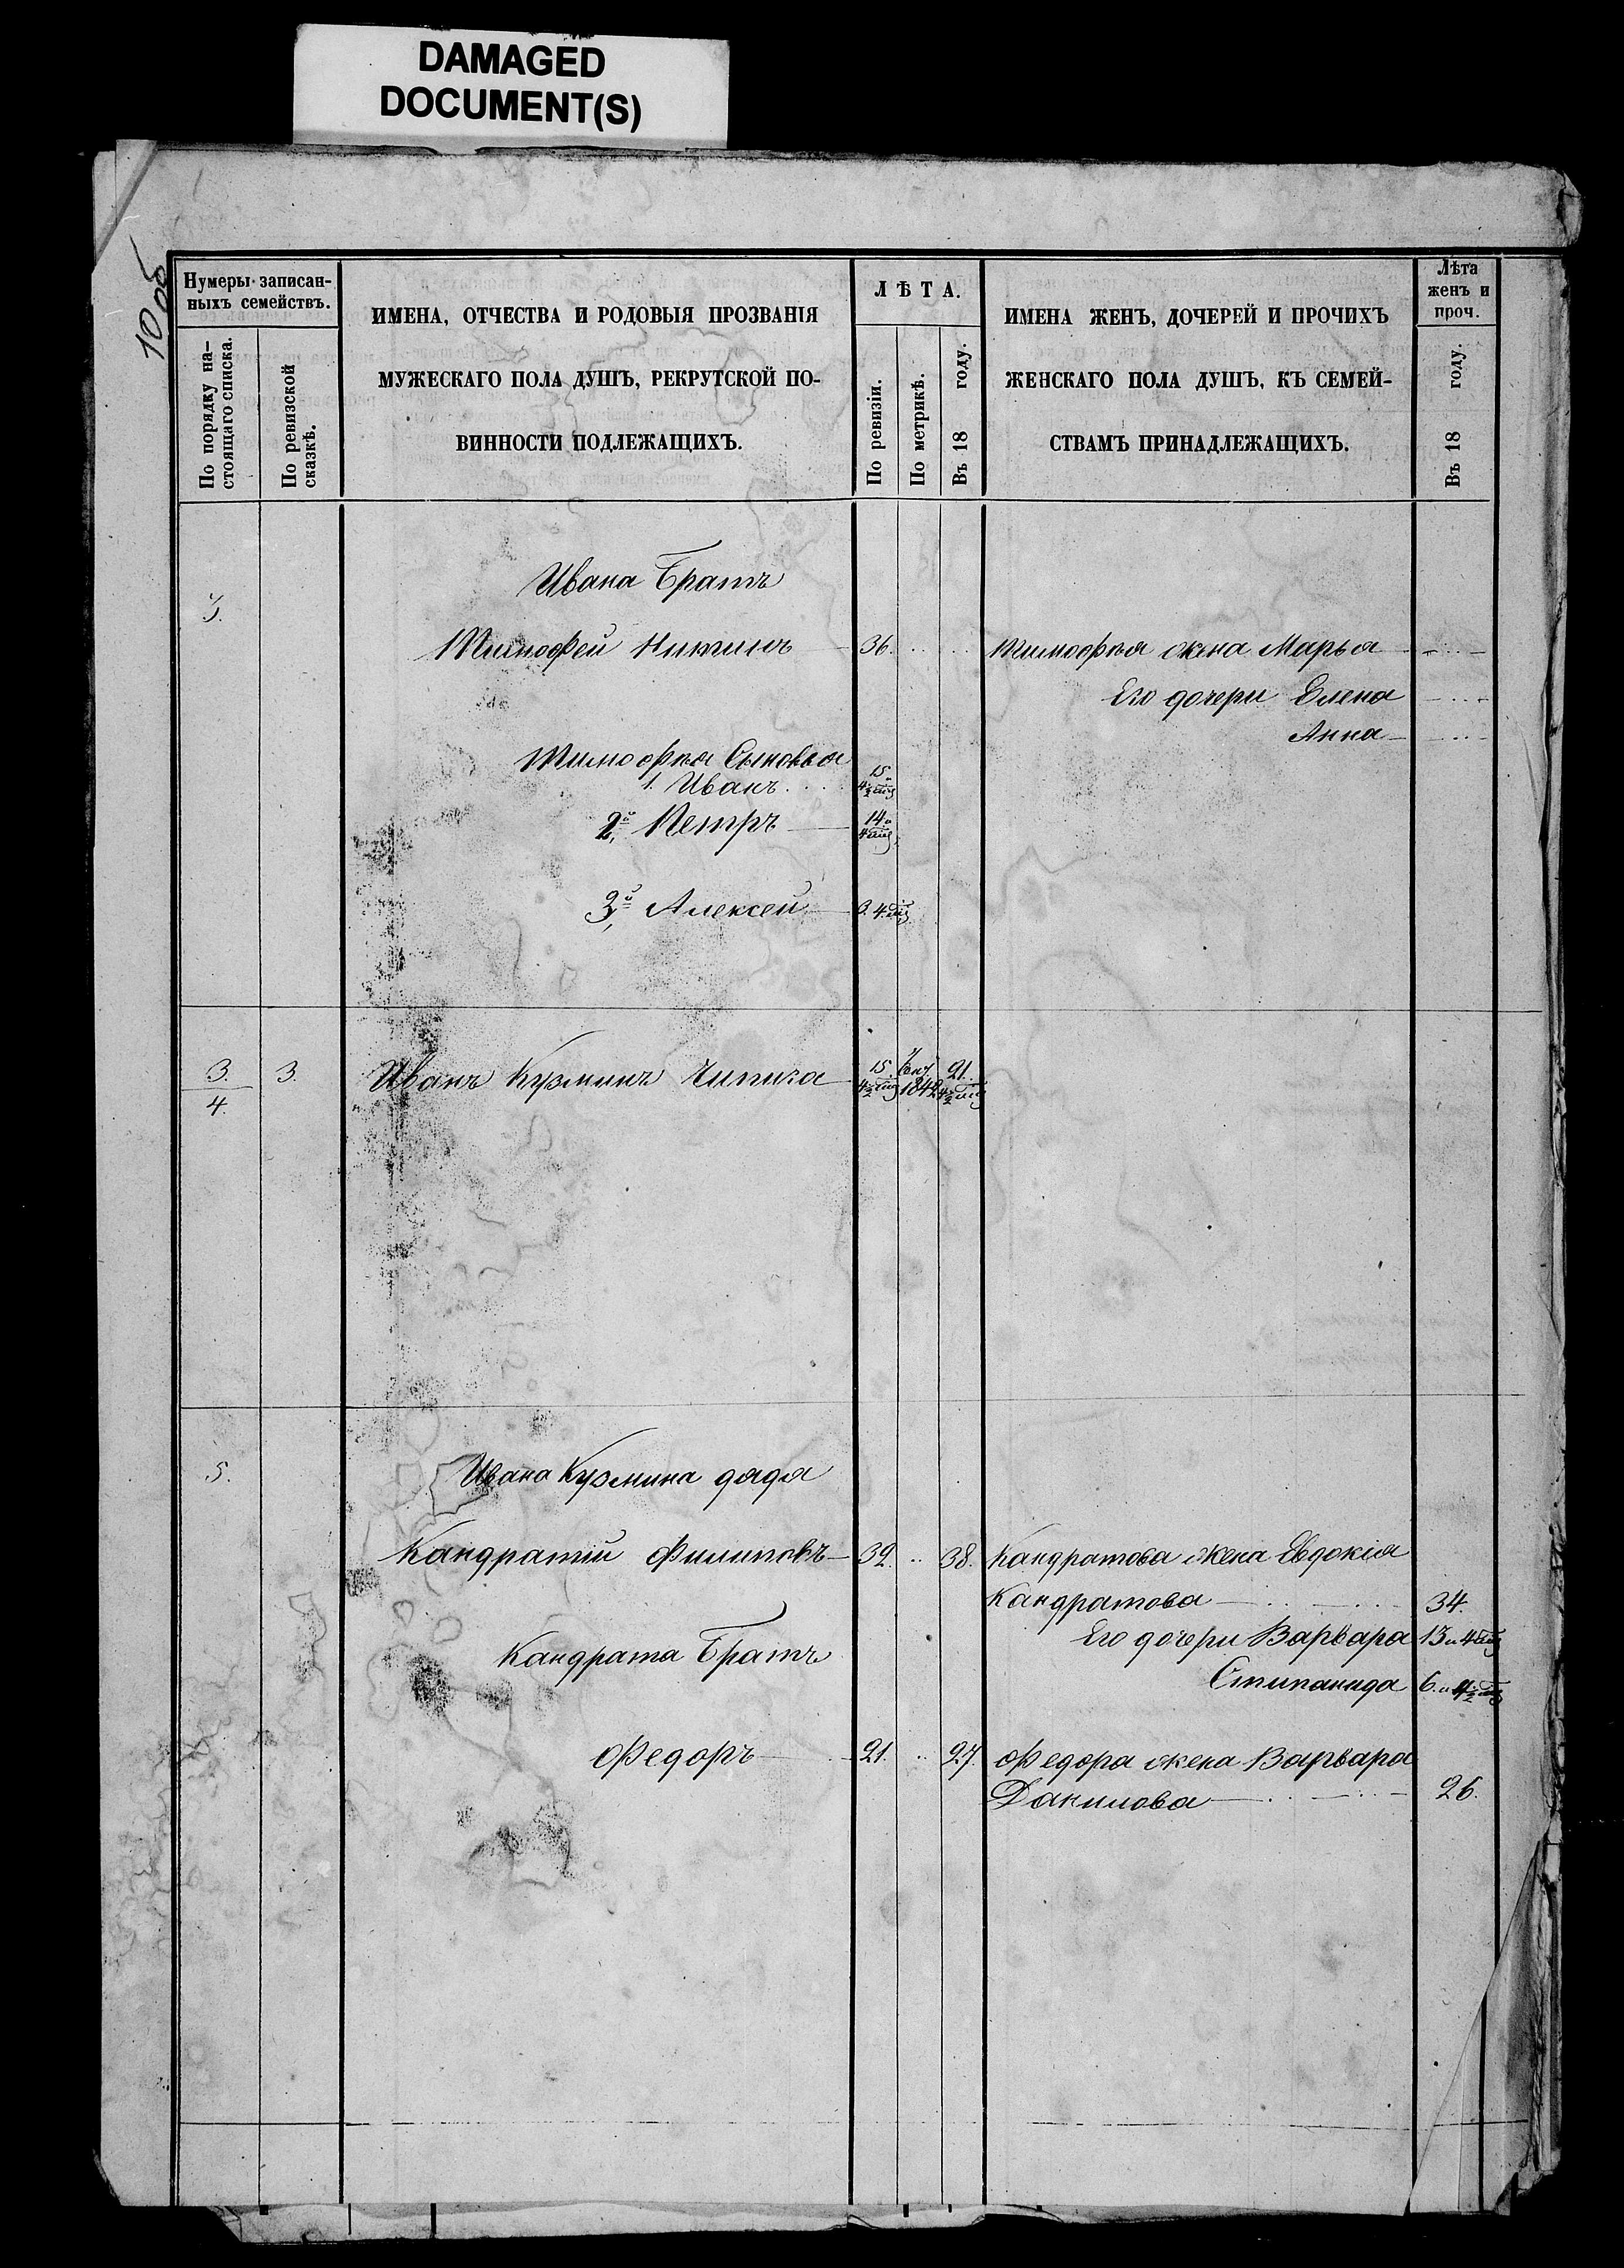 DAMAGED
DOCUMENT(S)
Нумеры записан-
ныхъ семействъ.
По порядку на-
стоящаго списка.
По ревизской
сказкѣ.
ИМЕНА, ОТЧЕСТВА И РОДОВЫЯ ПРОЗВАНІЯ
МУЖЕСКАГО ПОЛА ДУШЪ, РЕКРУТСКОЙ ПО-
ВИННОСТИ ПОДЛЕЖАЩИХЪ.
ЛѢТА.
По ревизіи.
По метрикѣ.
Въ 18 году.
ИМЕНА ЖЕНЪ, ДОЧЕРЕЙ И ПРОЧИХЪ
ЖЕНСКАГО ПОЛА ДУШЪ, КЪ СЕМЕЙ-
СТВАМЪ ПРИНАДЛЕЖАЩИХЪ.
Лѣта
женъ и
проч.
Въ 18 году.
Ивана Братъ
3.
Тимофей Никитинъ 36. Тимофея жена Марья
Его дочери Елена
Анна
Тимофея Сыновья
1. Иванъ 15 4½
2й Петръ 14 4
3й Алексей
3. 3. Иванъ Кузминъ Чипига 15 4½ 1842 21 4½
4.
5. Ивана Кузмина дядя
Кандратій Филиповъ 32. 38. Кандратова жена Евдокія
Кандратова 34.
Его дочери Варвара 13 и 4
Кандрата Братъ
Стипанида 6. и 4½
Федоръ 21. 27. Федора жена Варвара
Данилова 26.